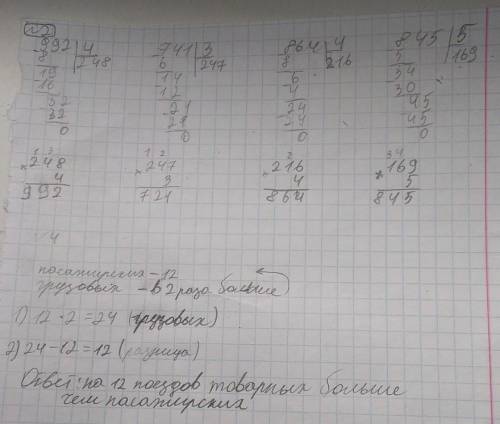 №2
992 | 4
8 248
19
16
32
32
0
741 | 3
6 247
14
12
21
21
0
864 | 4
8 216
6
4
24
24
0
845 | 5
5 169
34
30
45
45
0
1 3
× 248
4
992
1 2
× 247
3
721
2
× 216
4
864
3 4
× 169
5
845
4
пасажирских – 12
грузовых – в 2 раза больше
1) 12 · 2 = 24 (грузовых)
2) 24 – 12 = 12 (разница)
Ответ: на 12 поездов товарных больше
чем пасажирских